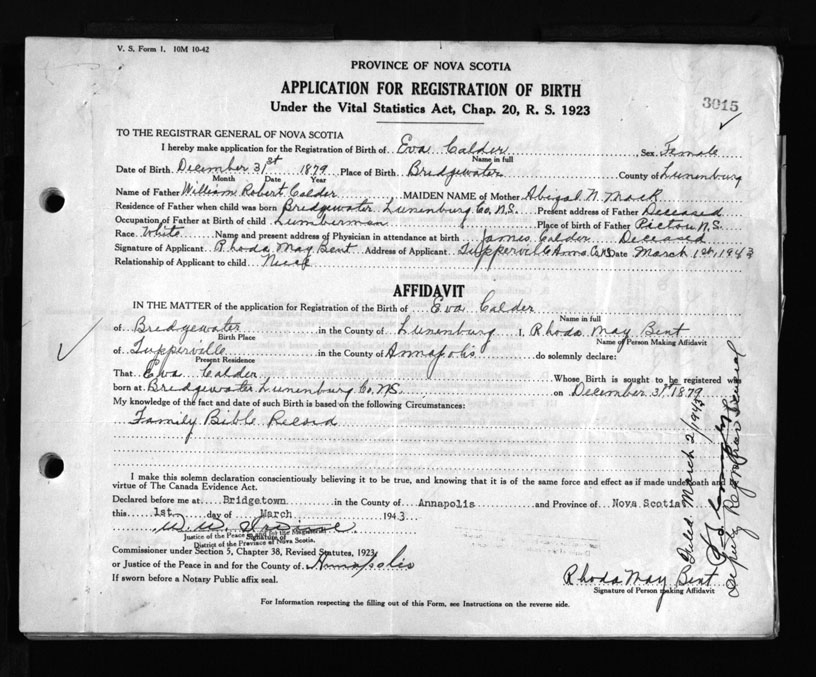 V. S. Form 1. 10M 10-42
PROVINCE OF NOVA SCOTIA
APPLICATION FOR REGISTRATION OF BIRTH
Under the Vital Statistics Act, Chap. 20, R. S. 1923
3015
TO THE REGISTRAR GENERAL OF NOVA SCOTIA
I hereby make application for the Registration of Birth of Eva Calder Sex Female
Name in full
Date of Birth December 31st 1879 Place of Birth Bridgewater County of Lunenburg
Month Date Year
Name of Father William Robert Calder MAIDEN NAME of Mother Abigal N. Mack
Residence of Father when child was born Bridgewater Lunenburg Co. N.S. Present address of Father Deceased
Occupation of Father at Birth of child Lumberman Place of birth of Father Pictou N.S.
Race White Name and present address of Physician in attendance at birth James Calder Deceased
Signature of Applicant Rhoda May Bent Address of Applicant Tupperville Anna. Co. N.S. Date March 1st, 1943
Relationship of Applicant to child Niece
AFFIDAVIT
IN THE MATTER of the application for Registration of the Birth of Eva Calder
Name in full
of Bridgewater in the County of Lunenburg I, Rhoda May Bent
Birth Place Name of Person Making Affidavit
of Tupperville in the County of Annapolis do solemnly declare:
Present Residence
That Eva Calder Whose Birth is sought to be registered was
born at Bridgewater Lunenburg Co. N.S. on December 31st 1879
My knowledge of the fact and date of such Birth is based on the following Circumstances:
Family Bible Record
I make this solemn declaration conscientiously believing it to be true, and knowing that it is of the same force and effect as if made under oath and by
virtue of The Canada Evidence Act.
Declared before me at Bridgetown in the County of Annapolis and Province of Nova Scotia
this 1st day of March 1943
Signature of
Justice of the Peace in and for the Magisterial
District of the Province of Nova Scotia.
Commissioner under Section 5, Chapter 38, Revised Statutes, 1923
or Justice of the Peace in and for the County of Annapolis
If sworn before a Notary Public affix seal.
Rhoda May Bent
Signature of Person making Affidavit
For Information respecting the filling out of this Form, see Instructions on the reverse side.
Filed March 2/1943
Deputy Registrar General